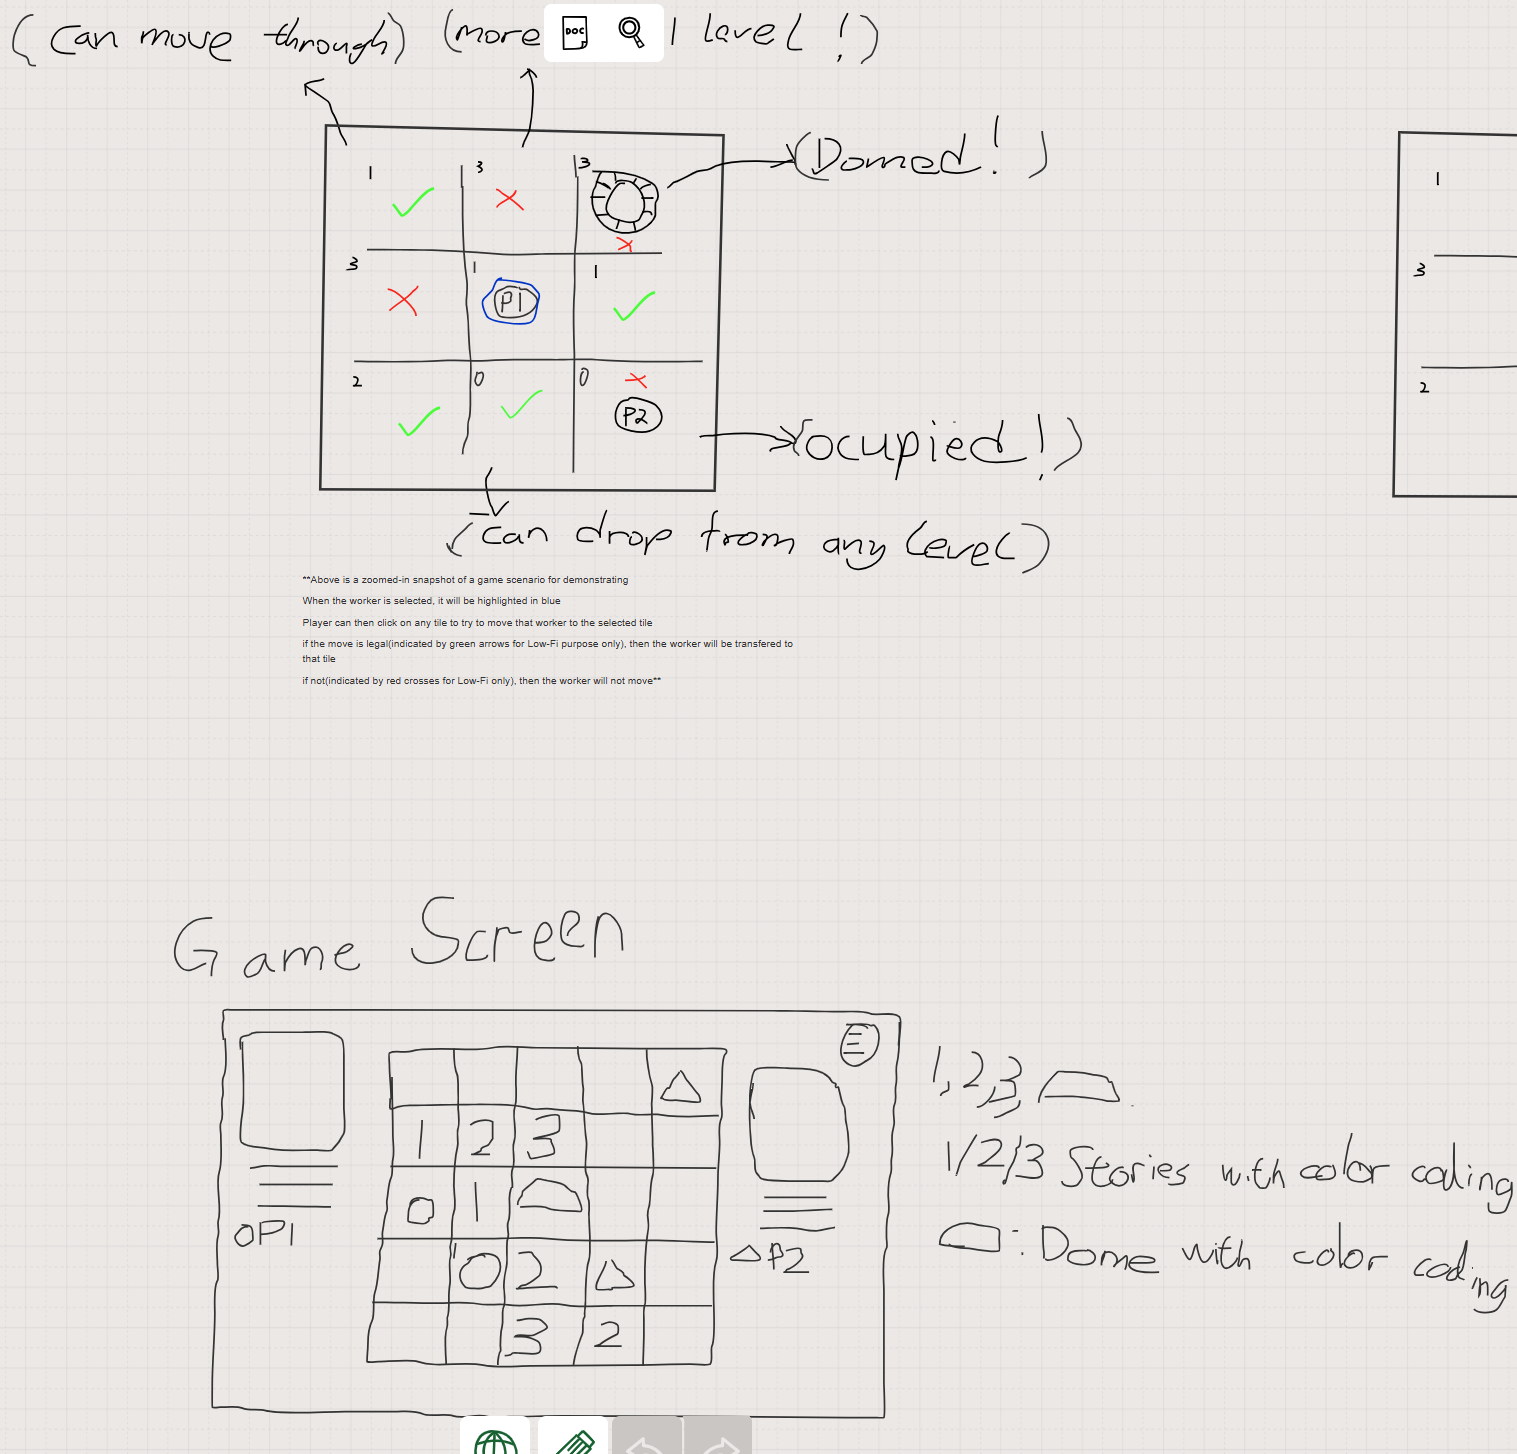 (can move through) (more
DOC
1 level!)
(Domed!)
1 3 3
1
3 1 1
3
P1
2 0 0
2
P2
(ocupied!)
(can drop from any level)
**Above is a zoomed-in snapshot of a game scenario for demonstrating
When the worker is selected, it will be highlighted in blue
Player can then click on any tile to try to move that worker to the selected tile
if the move is legal(indicated by green arrows for Low-Fi purpose only), then the worker will be transfered to
that tile
if not(indicated by red crosses for Low-Fi only), then the worker will not move**
Game Screen
1,2,3,
1 2 3
1/2/3 Stories with color coding
1
P1
: Dome with color coding
P2
2
3 2